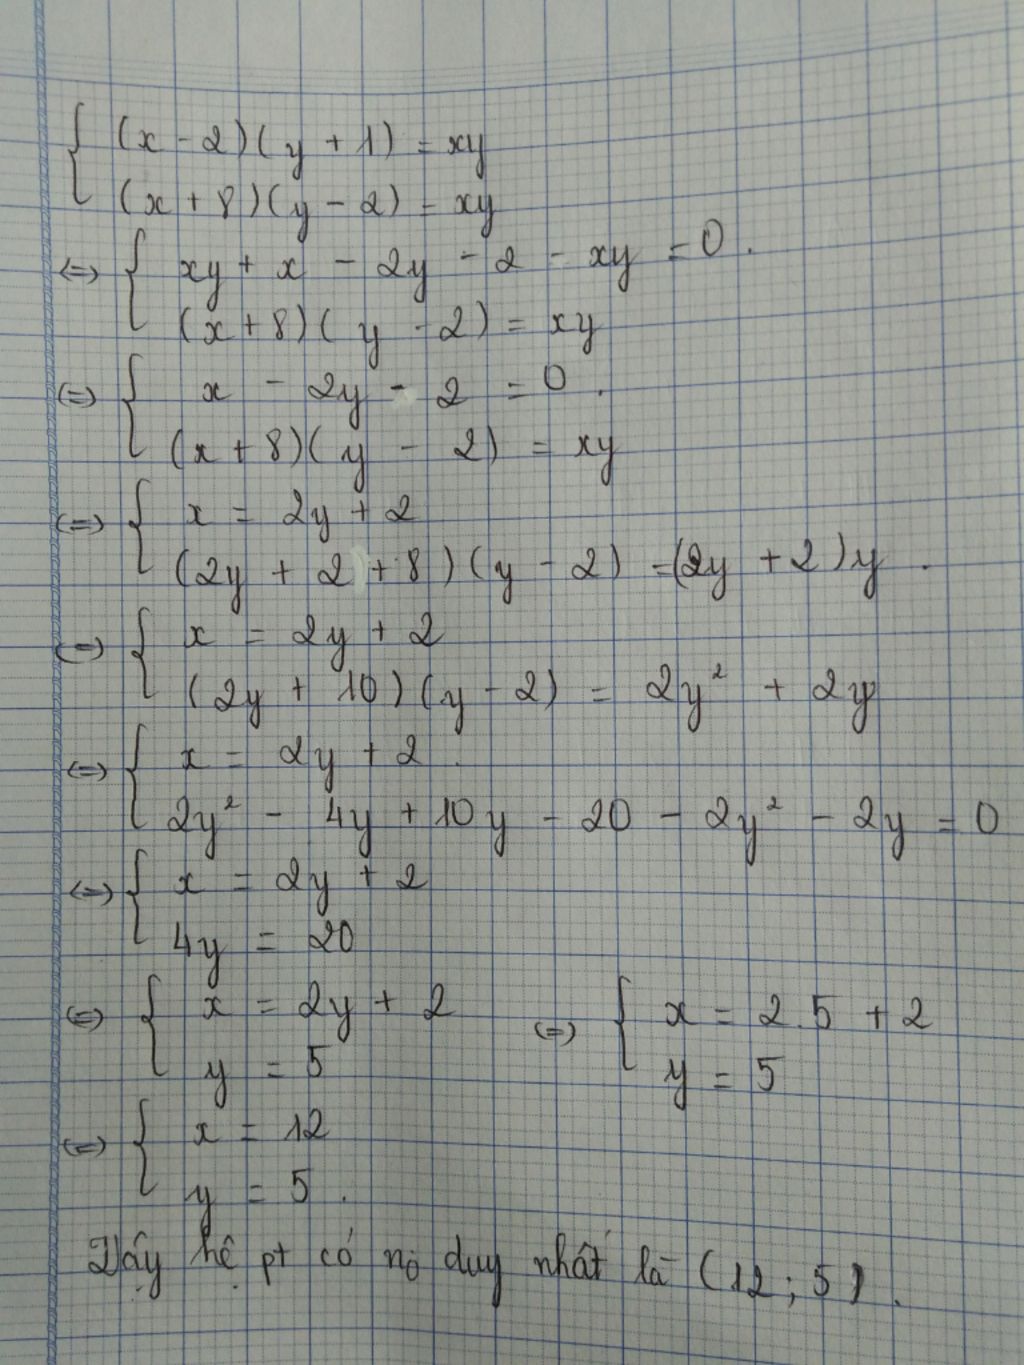 { (x - 2)(y + 1) = xy
(x + 8)(y - 2) = xy
(=) { xy + x - 2y - 2 - xy = 0.
(x + 8)(y - 2) = xy
(=) { x - 2y - 2 = 0.
(x + 8)(y - 2) = xy
(=) { x = 2y + 2
(2y + 2 + 8)(y - 2) = (2y + 2)y.
(=) { x = 2y + 2
(2y + 10)(y - 2) = 2y² + 2y
(=) { x = 2y + 2.
2y² - 4y + 10y - 20 - 2y² - 2y = 0
(=) { x = 2y + 2
4y = 20
(=) { x = 2y + 2 (=) { x = 2.5 + 2
y = 5 y = 5
(=) { x = 12
y = 5.
Vậy hệ pt có no duy nhất là (12; 5).